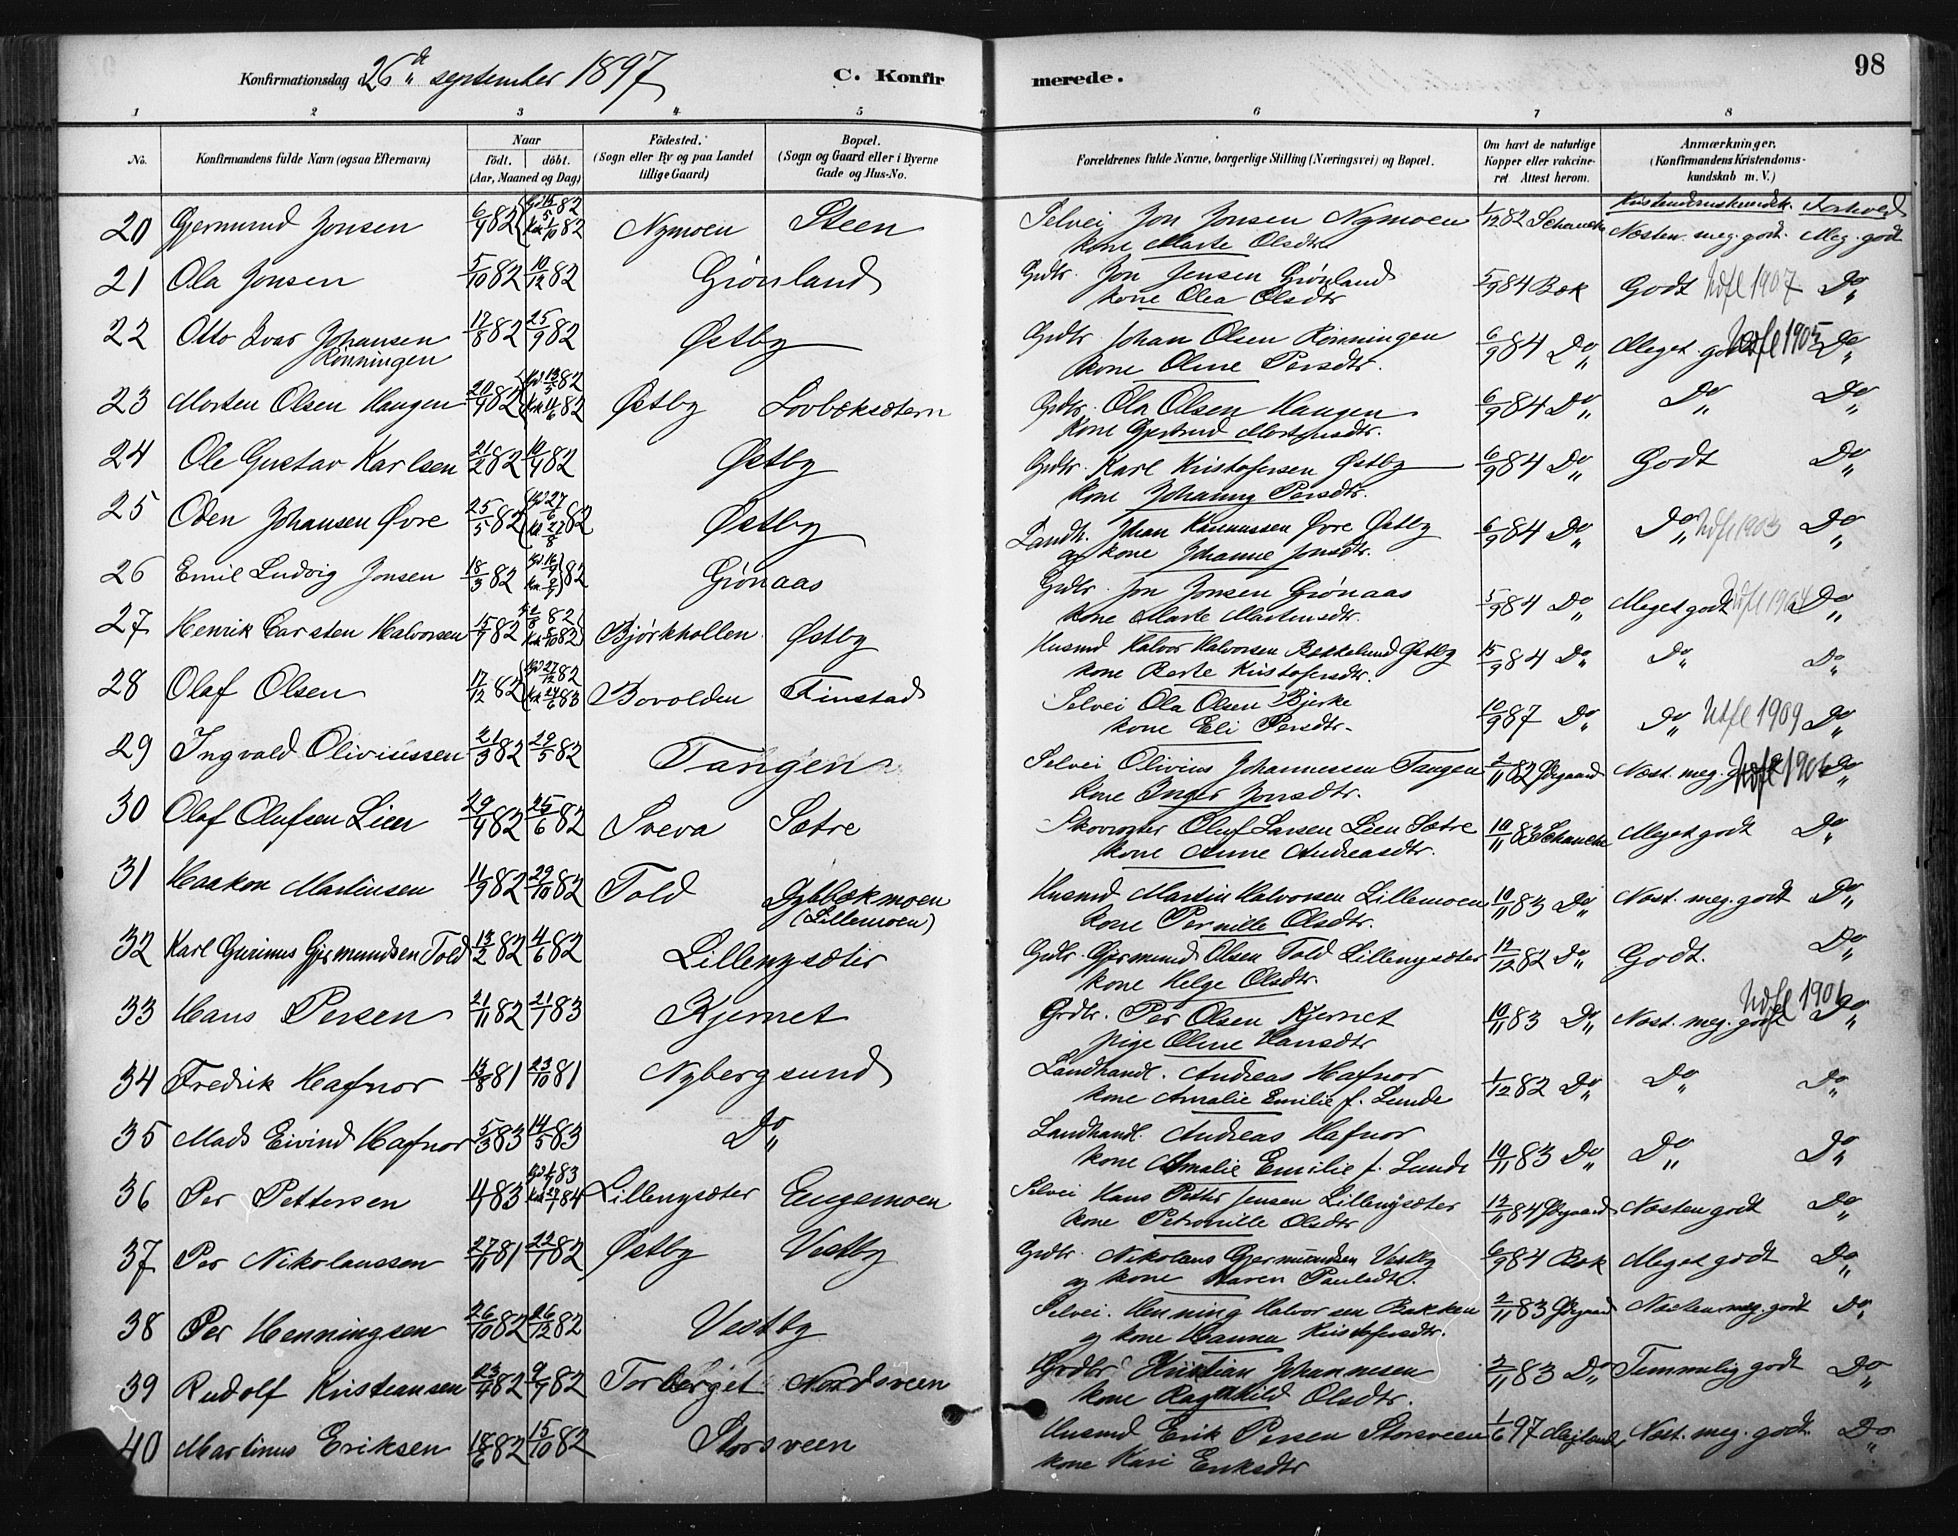 98
Konfirmationsdag d. 26de september 1897
C. Konfirmerede.
1 2 3 4 5 6 7 8
No. Konfirmandens fulde Navn (ogsaa Efternavn) Naar födt. döbt. (Aar, Maaned og Dag) Födested. (Sogn eller By og paa Landet tillige Gaard) Bopæl. (Sogn og Gaard eller i Byerne Gade og Hus-No. Forældrenes fulde Navne, borgerlige Stilling (Næringsvei) og Bopæl. Om havt de naturlige Kopper eller vakcineret. Attest herom. Anmærkninger. (Konfirmandens Kristendomskundskab m. V.)
Kristendomskundsk. Forhold
20 Gjermund Jonsen 6/4 82 Nymoen Steen Selvei Jon Jonsen Nymoen 1/12 82 Schanche Næsten meg. godt. Meg. godt
kone Marte Olsdtr.
21 Ola Jonsen 5/10 82 10/12 82 Grönland Grdbr. Jon Jensen Grönland 5/9 84 Bæk Godt Udfl 1907 Do
kone Olea Olsdtr
22 Otto Ivar Johansen Rönningen 17/8 82 25/9 82 Østby Grdbr. Johan Olsen Rönningen 6/9 84 Do Meget godt Udfl 1905 Do
kone Oline Persdtr.
23 Morten Olsen Haugen 82 Østby Lovbæksætern Grdbr. Ola Olsen Haugen 6/9 84 Do Do Do
kone Gjertrud Mortensdtr.
24 Ole Gustav Karlsen 21/2 82 10/4 82 Østby Grdbr. Karl Kristofersen Østby 6/9 84 Do Godt Do
kone Johanna Persdtr.
25 Oden Johansen Øvre 25/5 82 Østby Landh. Johan Rasmussen Øvre Østby 6/9 84 Do Do Udfl 1903 Do
og kone Johanne Jonsdtr.
26 Emil Ludvig Jonsen 18/3 82 Grönaas Grdbr. Jon Jonsen Grönaas 5/9 84 Do Meget godt Udfl 1904 Do
kone Marte Martinsdtr.
27 Henrik Carsten Halvorsen 15/7 82 Bjørkhollen Østby Husmd Halvor Halvorsen Bekkelund Østby 15/9 84 Do Do Do
kone Berte Kristofersdtr.
28 Olaf Olsen 17/12 82 Bovolden Finstad Selvei Ola Olsen Bjerke 10/9 87 Do Do Udfl 1909 Do
kone Eli Persdtr.
29 Ingvald Olivisissen 21/3 82 29/5 82 Tangen Selvei Olivius Johannessen Tangen 2/11 82 Ødegaard Næst. meg. godt Udfl 1906 Do
kone Inger Jonsdtr.
30 Olaf Olufsen Lien 29/4 82 25/6 82 Sveva Sætre Skovvogter Oluf Larsen Lien Sætre 10/11 83 Schanche Meget godt Do
kone Anne Andreasdtr.
31 Haakon Martinsen 11/9 82 29/10 82 Told Dybbækmoen (Lillemoen) Husmd Martin Halvorsen Lillemoen 10/11 83 Do Næst. meg. godt Do
kone Pernille Olsdtr.
32 Karl Gunnus Gjermundsen Told 13/2 82 4/6 82 Lillenysæter Grdbr. Gjermund Olsen Told Lillenysæter 12/12 82 Do Godt. Do
kone Helge Olsdtr.
33 Hans Persen 21/11 82 21/1 83 Kjernet Grdbr. Per Olsen Kjernet 10/11 83 Do Næst. meg. godt Udfl 1901 Do
pige Oline Hansdtr
34 Fredrik Hafnor 13/8 81 23/10 81 Nybergsund Landhandl. Andreas Hafnor 1/12 82 Do Do Do
kone Amalie Emilie f. Lunde
35 Mads Eivind Hafnor 5/3 83 14/5 83 Do Landhandl. Andreas Hafnor 10/11 83 Do Do Do
kone Amalie Emilie f. Lunde
36 Per Pettersen 83 Lillenysæter Engemoen Selvei Hans Petter Jensen Lillenysæter 12/11 84 Ødegaard Næsten godt Do
kone Petronille Olsdtr
37 Per Nikolaussen 27/11 81 22/1 82 Østby Vestby Grdbr. Nikolaus Gjermundsen Vestby 6/9 84 Bæk Meget godt Do
og kone Karen Paulsdtr.
38 Per Henningsen 26/10 82 26/12 82 Vestby Selvei. Henning Halvorsen Bakken 2/11 83 Ødegaard Næsten meg. godt Do
og kone Hanna Kristofersdtr.
39 Rudolf Kristiansen 23/4 82 9/7 82 Torberget Nordsveen Grdbr Kristian Johannesen 2/11 83 Do Temmelig godt Do
kone Ragnhild Olsdtr.
40 Martinus Eriksen 18/6 82 15/10 82 Storsveen Husmd Erik Persen Storsveen 1/6 97 Næst. meg. godt Do
kone Kari Eriksdtr